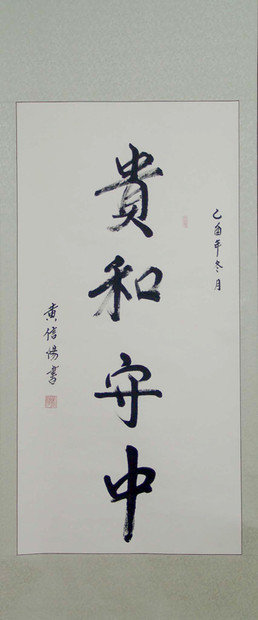 乙酉年冬月
貴和守中
黄信陽書